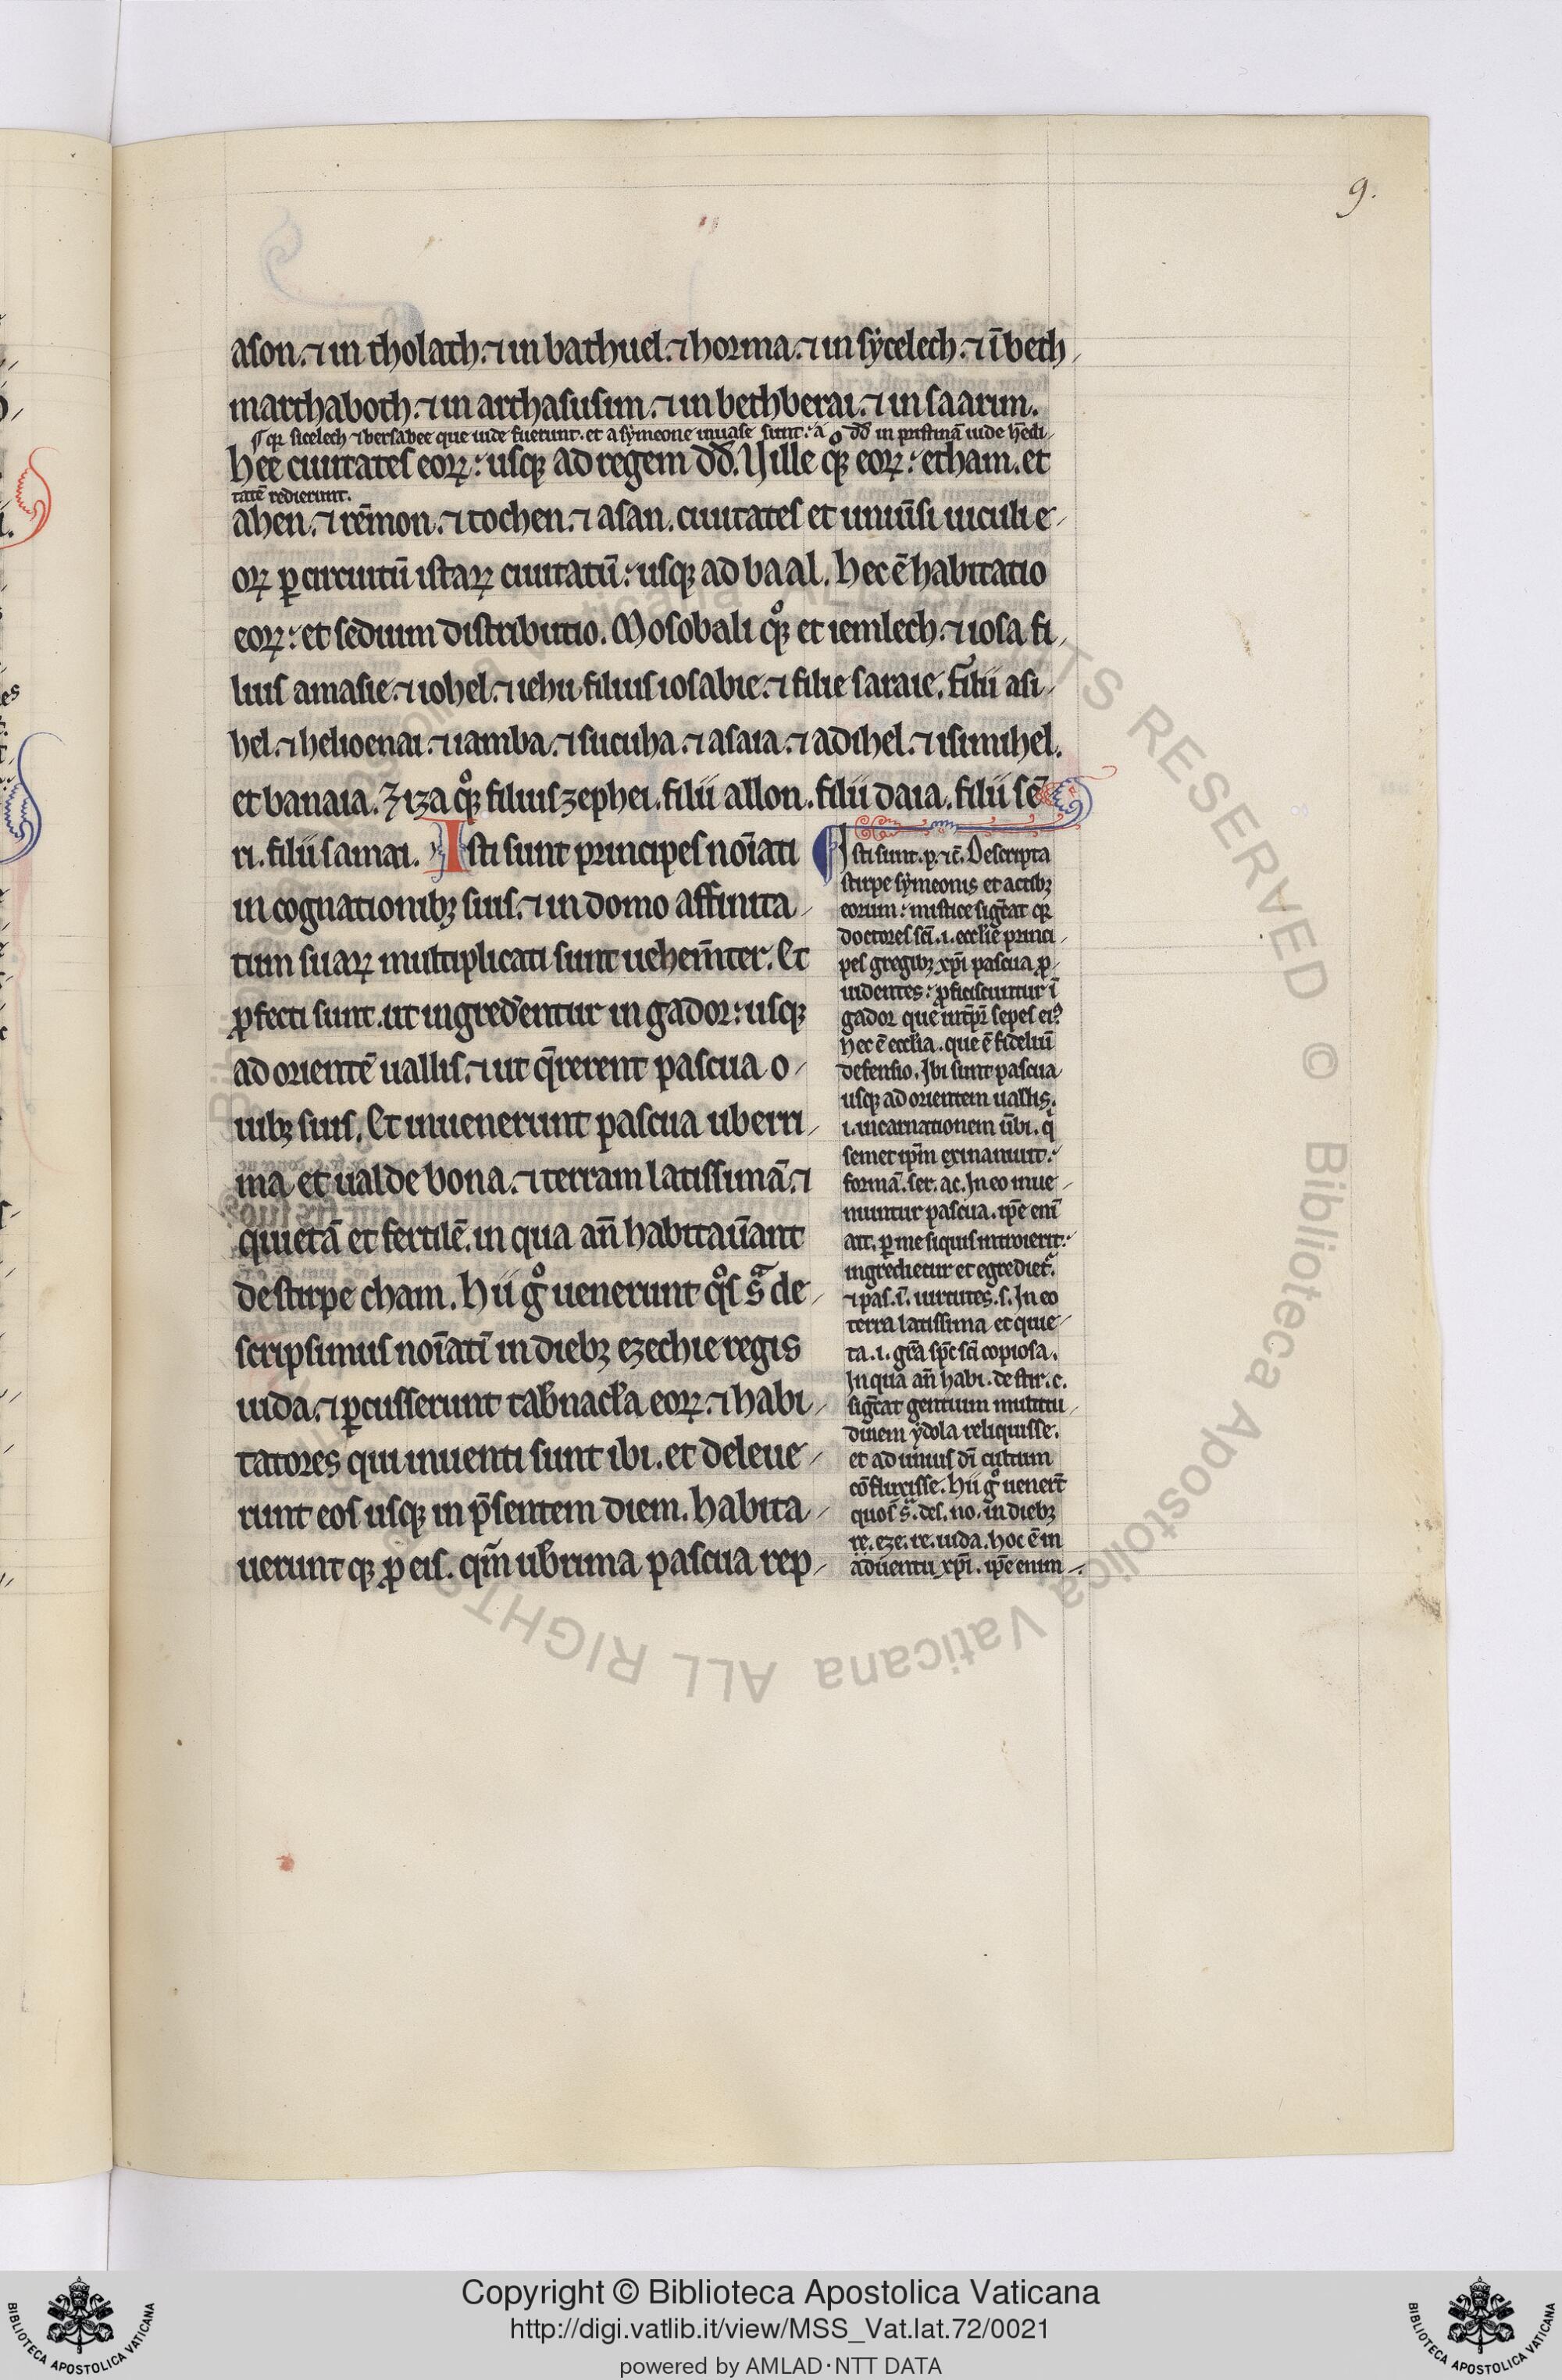 9.
ason. ⁊ in tholath. ⁊ in bathuel. ⁊ horma. ⁊ in sẏcelech. ⁊ ī beth
marthaboth. ⁊ in arthasusim. ⁊ in bethberai. ⁊ in saarim.
¶ qꝛ sicelech ⁊ bersabee que iude fuerunt. et a sẏmeone inuase sunt. a dd̄ in pristinā iude hedi
hee ciuitates eoꝝ: usqꝫ ad regem dd̄. Uille qꝫ eoꝝ: etham. et
tatē redierunt.
ahen. ⁊ rēmon. ⁊ tochen. ⁊ asan. ciuitates et uniūsi uiculi e
oꝝ ꝑ circuitū istaꝝ ciuitatū: usqꝫ ad baal. hec ē habitatio
eoꝝ: et sedium distributio. Mosobali qꝫ et iemlech. ⁊ iosa fi
lius amasie. ⁊ iohel. ⁊ iehu filius iosabie. ⁊ filie saraie. filii asi
hel. ⁊ helioenai. ⁊ iamba. ⁊ sucuha. ⁊ asaia. ⁊ adihel. ⁊ isimihel.
et banaia. ziza qꝫ filius zephei. filii allon. filii daia. filii sē
ri. filii samai. Isti sunt principes noīati
in cognationibꝫ suis. ⁊ in domo affinita
tum suaꝝ multiplicati sunt uehem̄ter. Et
ꝓfecti sunt. ut ingred̄entur in gador: usqꝫ
ad orientē uallis. ⁊ ut q̄rerent pascua o
uibꝫ suis. Et inuenerunt pascua uberri
ma et ualde bona. ⁊ terram latissimā. ⁊
quietā et fertilē. in qua an̄ habitaūant
de stirpe cham. hii gͦ uenerunt qͦs sᵃ de
scripsimus noīatī in diebꝫ ezechie regis
iuda. ⁊ ꝑcusserunt tab̄nacl̄a eoꝝ. ⁊ habi
tatores qui inuenti sunt ibi. et deleue
runt eos usqꝫ in p̄sentem diem. habita
uerunt qꝫ ꝓ eis. qm̄ ub̄rima pascua rep
Isti sunt. p. ⁊c̄. Descripta
stirpe sẏmeonis et actibꝫ
eorum: mistice siḡtat qꝛ
doctores sc̄i. i. eccl̄ie princi
pes gregibꝫ xp̄i pascua ꝓ
uidentes: ꝓficiscuntur ī
gador que int̄p̄r sepes eiꝰ
hec ē eccl̄ia. que ē fideliū
defensio. Ibi sunt pascua
usqꝫ ad orientem uallis.
i. incarnationem ūbi. q
semet ip̄m exinaniuit:
formā. ser. ac. In eo inue
niuntur pascua. ip̄e enī
ait. ꝑ me siquis introierit:
ingredietur et egrediet̄.
⁊ pas. ī. uirtutes. s. In eo
terra latissima et quie
ta. i. gr̄a sp̄c sc̄i copiosa.
In qua an̄ habi. de stir. c.
siḡtat gentium multitu
dinem ẏdola reliquisse.
et ad unius dī cultum
cōfluxisse. hii gͦ uenert̄
quos sᵃ. des. no. in diebꝫ
re. eze. re. iuda. hoc ē in
aduentu xp̄i. ip̄e enim
Copyright © Biblioteca Apostolica Vaticana
http://digi.vatlib.it/view/MSS_Vat.lat.72/0021
powered by AMLAD·NTT DATA
BIBLIOTECA APOSTOLICA VATICANA
BIBLIOTECA APOSTOLICA VATICANA